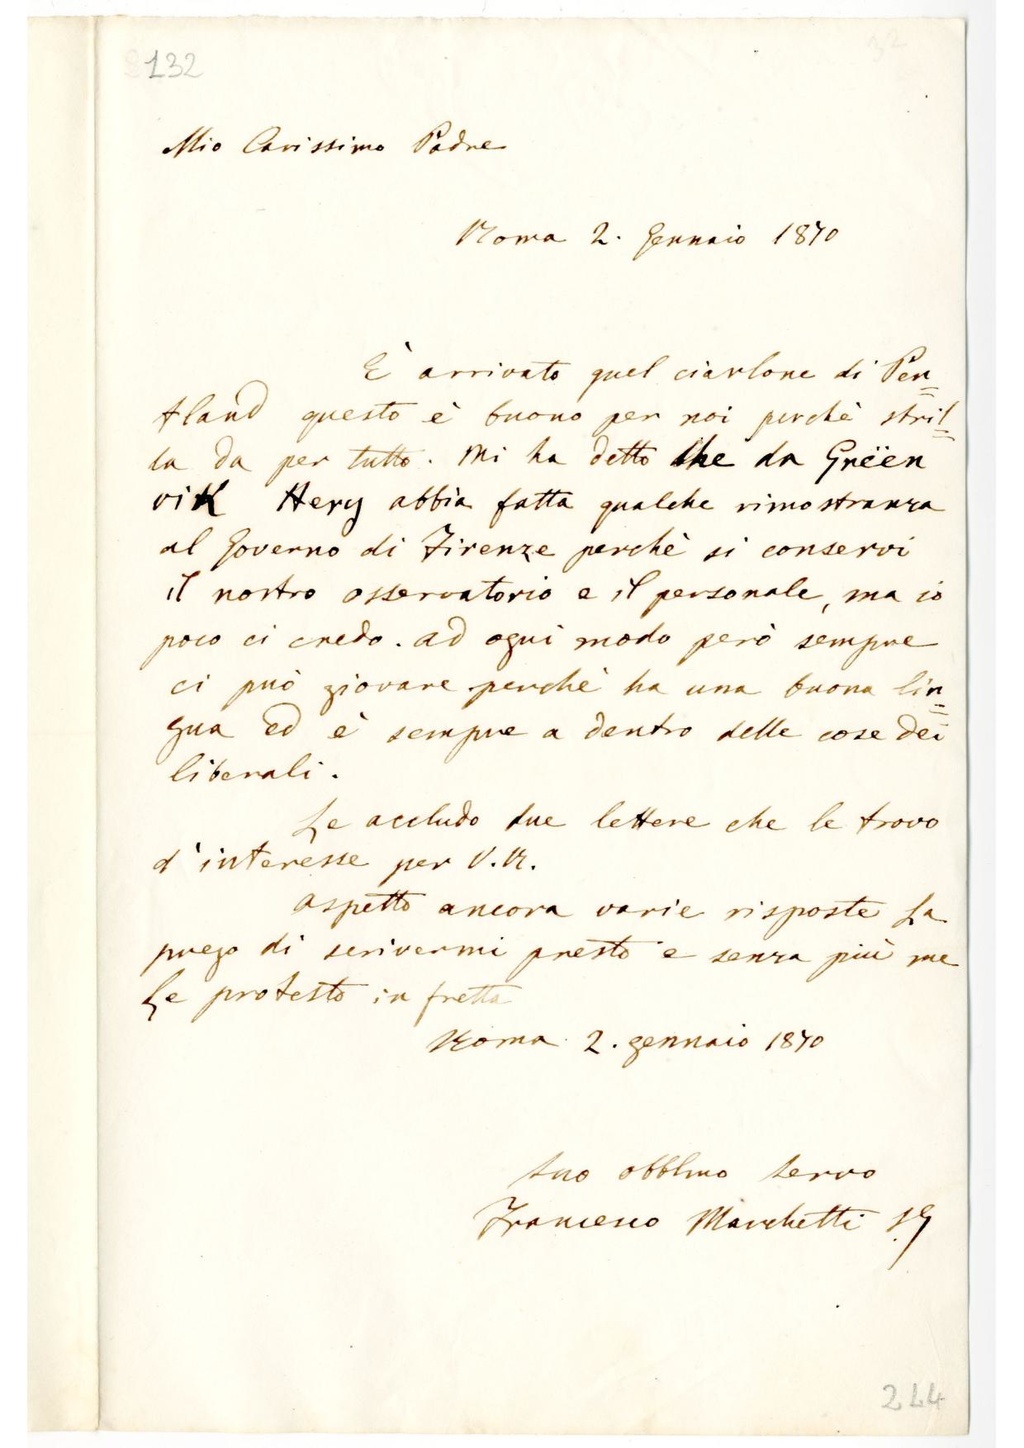 132
Mio Carissimo Padre
Roma 2. Gennaio 1870
È arrivato quel ciarlone di Pen=
tland questo è buono per noi perchè stril=
la da per tutto. Mi ha detto che da Grëen
vik Hery abbia fatta qualche rimostranza
al Governo di Firenze perchè si conservi
il nostro osservatorio e il personale, ma io
poco ci credo. ad ogni modo però sempre
ci può giovare perchè ha una buona lin=
gua ed è sempre a dentro delle cose dei
liberali.
Le accludo due lettere che le trovo
d'interesse per V.R.
Aspetto ancora varie risposte La
prego di scrivermi presto e senza più me
Le protesto in fretta
Roma 2. gennaio 1870
Suo obblmo servo
Francesco Marchetti S.J
244